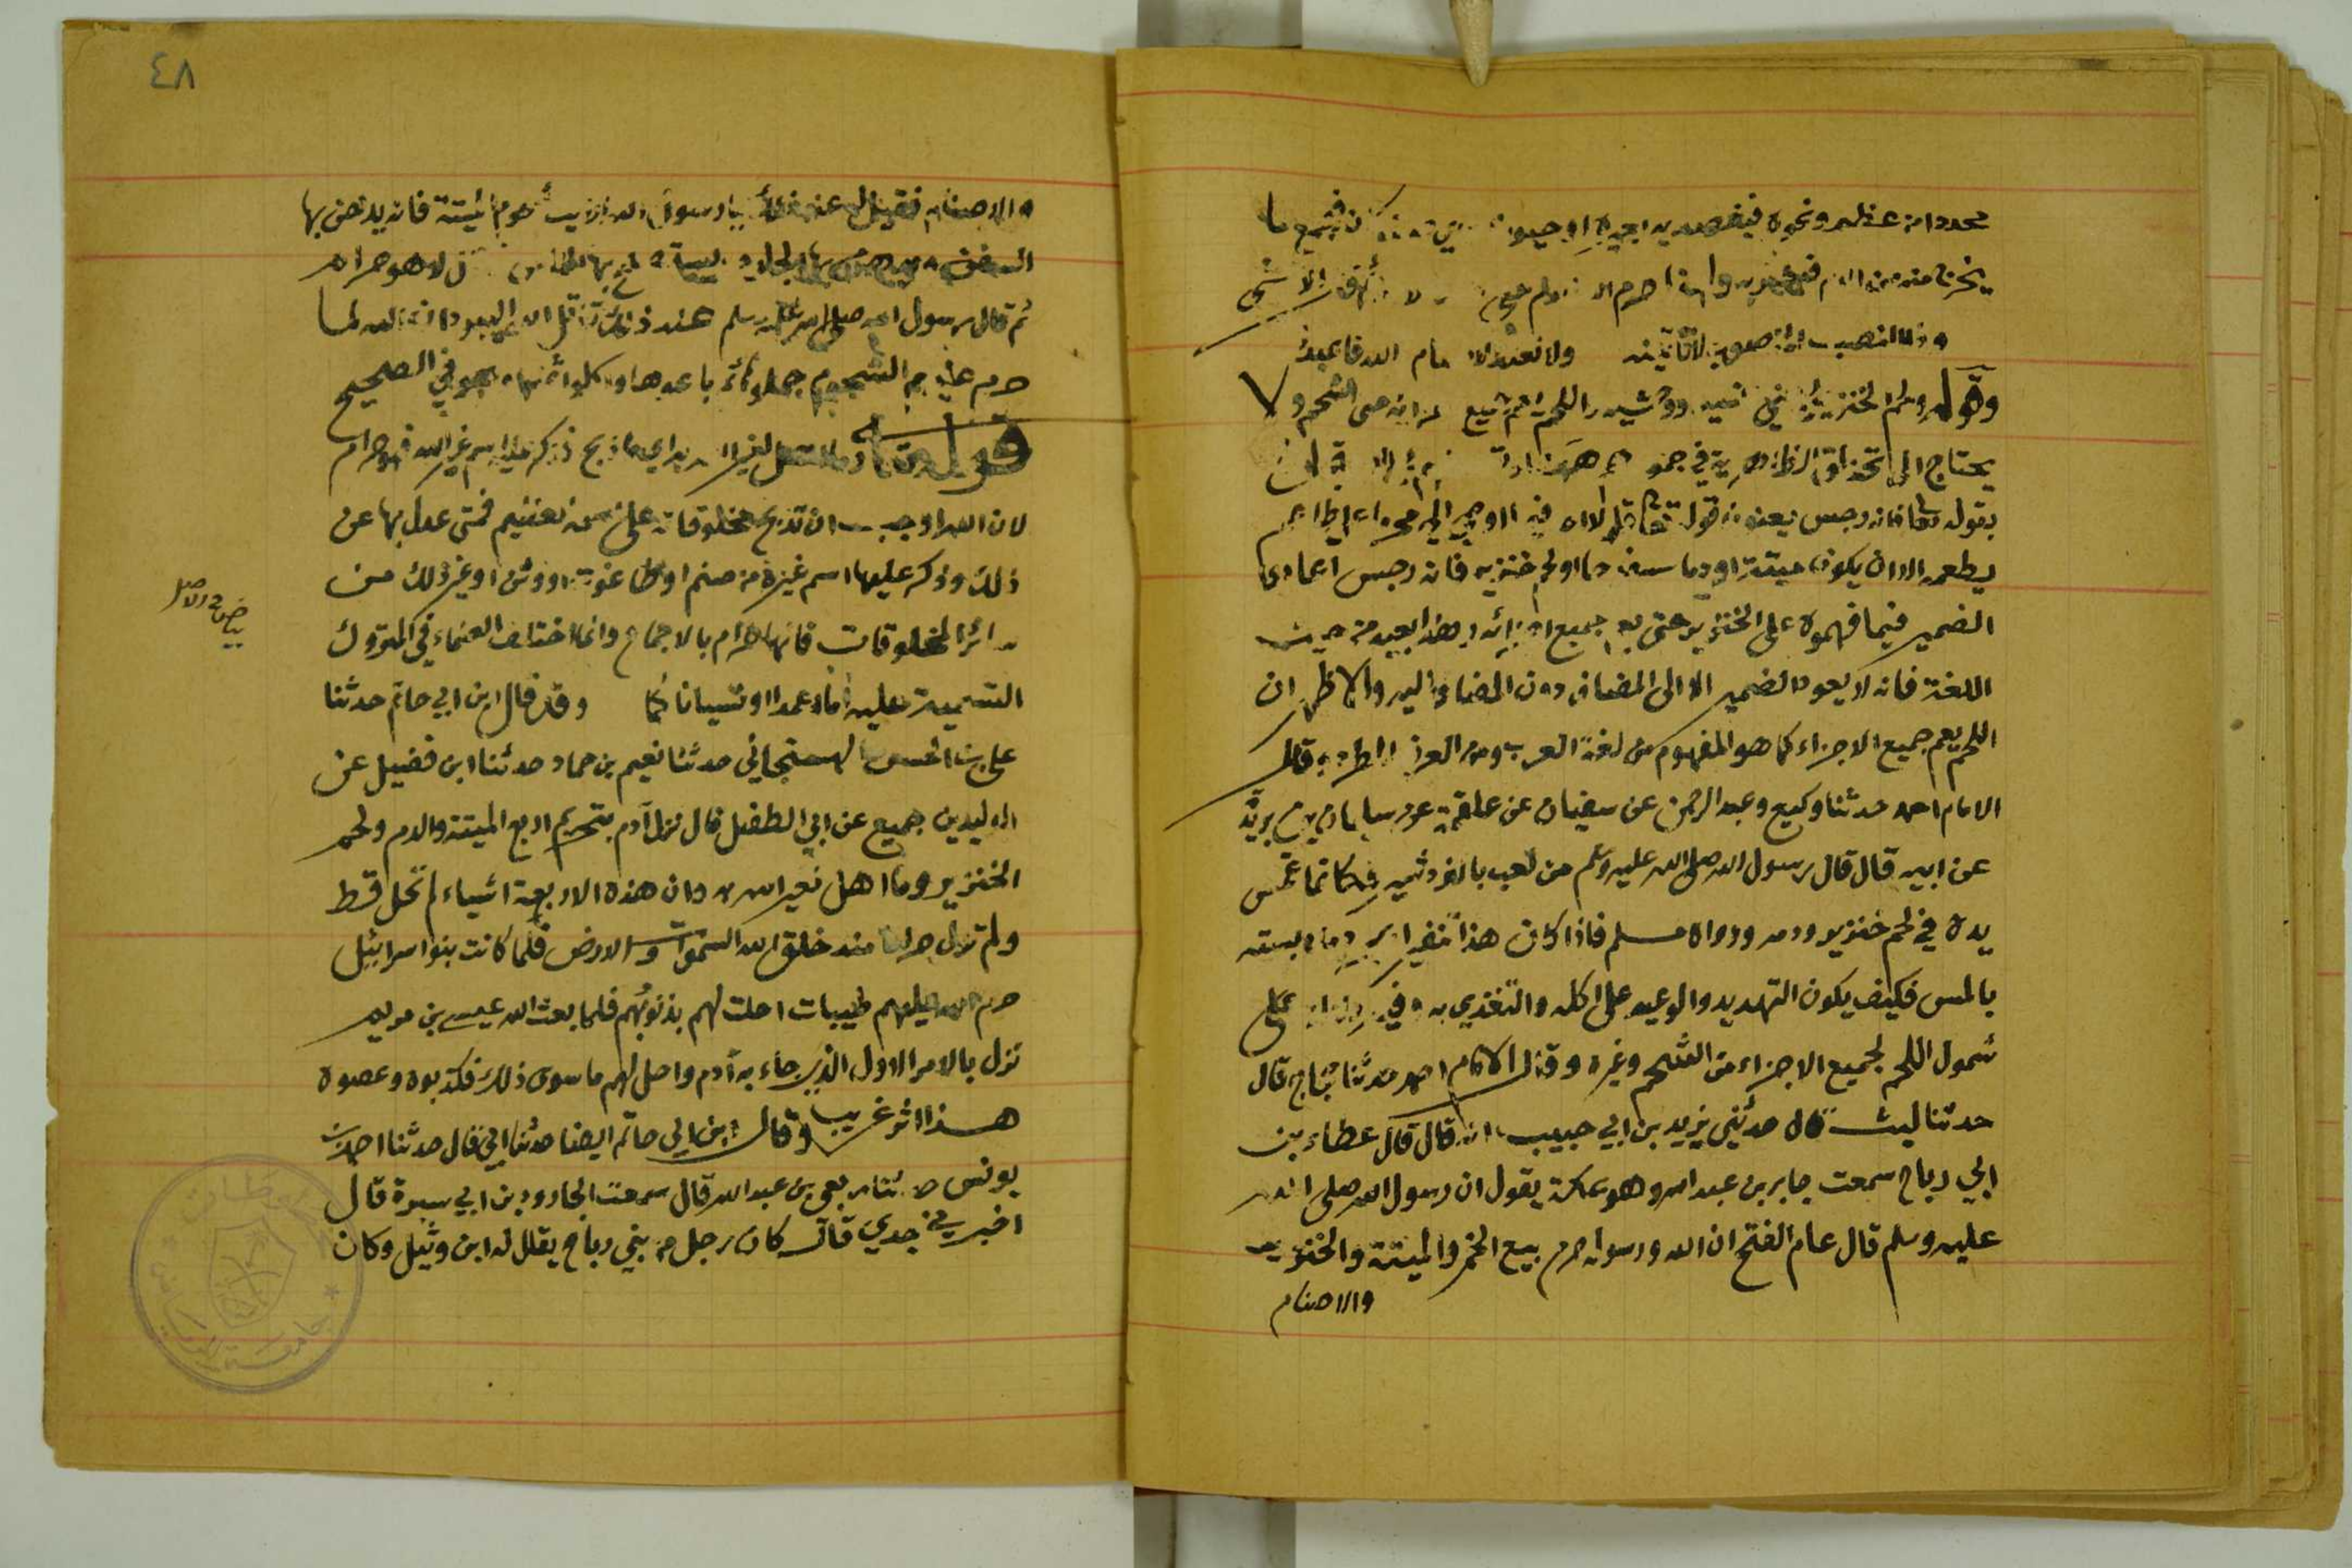 محددا من عظم ونحوه فيفصد به بعيره او حيوانا من فيجمع ما
يخرج منه من الدم فيشربه ولهذا حرم الله الدم على
وذا النصب المنصوب لا تأتينه ولا تعبد الاصنام والله فاعبدا
وقوله ولحم الخنزير يعني انسيه ووحشيه واللحم يعم جميع اجزائه حتى الشحم ولا
يحتاج الى تحذلق الظاهرية في جمودهم هاهنا
بقوله تعالى فانه رجس يعنون قوله تعالى قل لا اجد فيما اوحي الي محرما على طاعم
يطعمه الا ان يكون ميتة او دما مسفوحا او لحم خنزير فانه رجس اعادوا
الضمير فيما فهموه على الخنزير حتى يعم جميع اجزائه وهذا بعيد من حيث
اللغة فانه لا يعود الضمير الا الى المضاف دون المضاف اليه والاظهر ان
اللحم يعم جميع الاجزاء كما هو المفهوم من لغة العرب ومن العرف المطرد قال
الامام احمد حدثنا وكيع وعبد الرحمن عن سفيان عن علقمة عن سليمان بن بريدة
عن ابيه قال قال رسول الله صلى الله عليه وسلم من لعب بالنردشير فكأنما غمس
يده في لحم خنزير ودمه ورواه مسلم فاذا كان هذا تنفيرا لمجرد ملابسته
بالمس فكيف يكون التهديد والوعيد على اكله والتغذي به وفي دلالة على
شمول اللحم لجميع الاجزاء من الشحم وغيره وقال الامام احمد حدثنا حجاج قال
حدثنا ليث قال حدثني يزيد بن ابي حبيب انه قال قال عطاء بن
ابي رباح سمعت جابر بن عبد الله وهو بمكة يقول ان رسول الله صلى الله
عليه وسلم قال عام الفتح ان الله ورسوله حرم بيع الخمر والميتة والخنزير
والاصنام
٤٨
والاصنام فقيل له عند ذلك يا رسول الله ارايت شحوم الميتة فانه يدهن بها
السفن ويدهن بها الجلود ويستصبح بها الناس قال لا هو حرام
ثم قال رسول الله صلى الله عليه وسلم عند ذلك قاتل الله اليهود ان الله لما
حرم عليهم الشحوم جملوه ثم باعوها واكلوا ثمنها وهو في الصحيح
قوله تعالى وما اهل لغير الله به اي ما ذبح ذكر عليه اسم غير الله فهو حرام
لان الله اوجب ان تذبح مخلوقاته على اسمه العظيم فمتى عدل بها عن
ذلك وذكر عليها اسم غيره من صنم او طاغوت او وثن او غير ذلك من
سائر المخلوقات فانها حرام بالاجماع وانما اختلف العلماء في المتروك
التسمية عليه اما عمدا او نسيانا كما وقد قال ابن ابي حاتم حدثنا
بياض في الاصل
علي بن الحسن الهسنجاني حدثنا نعيم بن حماد حدثنا ابن فضيل عن
الوليد بن جميع عن ابي الطفيل قال نزل آدم بتحريم اربع الميتة والدم ولحم
الخنزير وما اهل لغير الله به وان هذه الاربعة اشياء لم تحل قط
ولم تزل حراما منذ خلق الله السموات والارض فلما كانت بنوا اسرائيل
حرم الله عليهم طيبات احلت لهم بذنوبهم فلما بعث الله عيسى بن مريم
نزل بالامر الاول الذي جاء به آدم واحل لهم ما سوى ذلك فكذبوه وعصوه
هذا اثر غريب وقال ابن ابي حاتم ايضا حدثنا ابي قال حدثنا احمد بن
يونس حدثنا ربعي بن عبد الله قال سمعت الجارود بن ابي سبرة قال
اخبرني جدي قال كان رجل من بني رباح يقال له ابن وثيل وكان